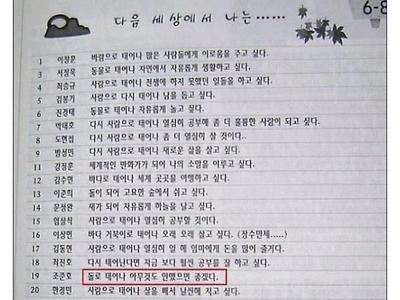 다음 세상에서 나는……
6-8
1 이창훈 바람으로 태어나 많은 사람들에게 이로움을 주고 싶다.
2 서창묵 동물로 태어나 자연에서 자유롭게 생활하고 싶다.
4 최승규 사람으로 태어나 전생에 하지 못했던 일들을 하고 싶다.
5 김봉기 사람으로 다시 태어나 남을 돕고 싶다.
6 진경태 동물로 태어나 자유롭게 놀고 싶다.
7 박태호 다시 사람으로 태어나 열심히 공부해 좀 더 훌륭한 사람이 되고 싶다.
8 도현섭 다시 사람으로 태어나 좀 더 열심히 살 것이다..
9 방성민 다시 사람으로 태어나 새로운 삶을 살고 싶다.
11 강정훈 세계적인 만화가가 되어 나의 소망을 이루고 싶다.
12 김수현 바다로 태어나 세계 곳곳을 여행하고 싶다.
13 이준희 돌이 되어 고요한 숲에서 쉬고 싶다.
14 문성완 새가 되어 자유롭게 하늘을 날고 싶다.
15 임상식 사람으로 태어나 열심히 공부할 것이다.
16 이상민 바다 거북이로 태어나 오래 오래 살고 싶다. (장수만세.....)
17 김동현 사람으로 태어나 열심히 일 해 엄마에게 돈을 많이 줄거다.
18 최진호 다시 태어난다면 지금 보다 훨씬 공부를 잘 하고 싶다.
19 조준호 돌로 태어나 아무것도 안했으면 좋겠다.
20 한경민 사람으로 태어나 살을 빼서 날씬해 지고 싶다.